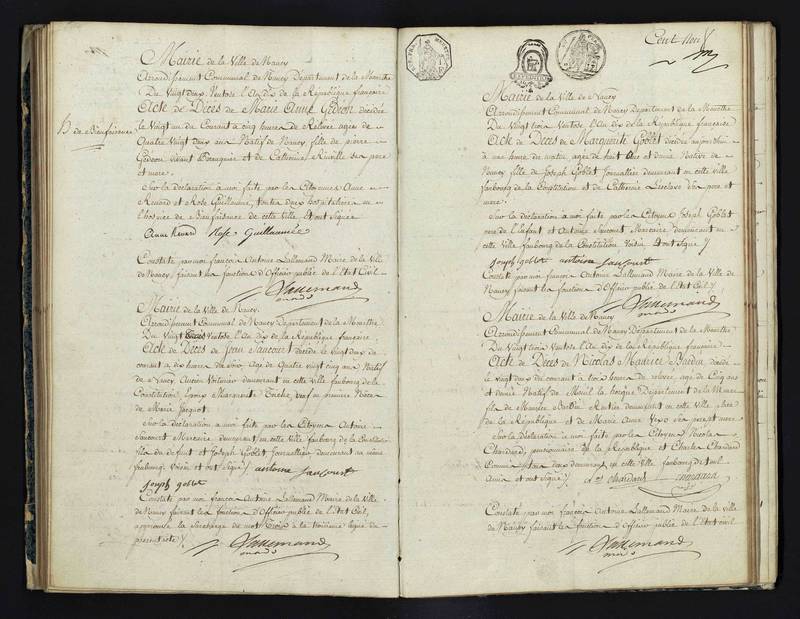 Mairie de la Ville de Nancy
Arrondissement Communal de Nancy Département de la Meurthe
Du Vingt deux Ventose l'An dix de la République française
Acte de Décès de Marie Anne Gédeon décédée
le Vingt un du Courant à cinq heures de Relevée agée de
Quatre Vingt deux ans Native de Nancy, fille de pierre
Gédeon vivant Bourgeois et de Catherine Réville ses pere
et mere.
h. de Bienfaisance
Sur la déclaration à moi faite par les Citoyennes Anne
Renard et Rose Guillaume, toutes deux hospitalieres en
l'hospice de Bienfaisance de cette ville, et ont signée
Anne Renard Rose Guillaumée
Constaté par moi françois Antoine Lallemand Maire de la Ville
de Nancy, faisant les fonctions d'Officier public de l'Etat Civil
Lallemand
Mairie de la Ville de Nancy
Arrondissement Communal de Nancy Département de la Meurthe
Du Vingt Ventose l'An dix de la République française
Acte de Décès de Jean Saucourt décédé le Vingt deux du
courant à dix heures du soir Agé de Quatre vingt cinq ans Natif
de Nancy, Ancien Voiturier demeurant en cette ville faubourg de la
Constitution Epoux Margueritte veuf en premiere Noces
de Marie Jacquot
Sur la déclaration à moi faite par les Citoyens Antoine
Saucourt Mercaire demeurant en cette Ville faubourg de la Constitution
fils du défunt et Joseph Goblet Journallier, demeurant au même
faubourg Voisin et ont Signé antoine Saucourt
joseph goblet
Constaté par moi françois Antoine Lallemand Maire de la Ville
de Nancy faisant les fonctions d'Officier public de l'Etat Civil,
approuvé la Surcharge du mot Trois à la troisieme ligne du
présent acte
Lallemand
Mairie de la Ville de Nancy
Arrondissement Communal de Nancy Département de la Meurthe
Du Vingt trois Ventose l'An dix de la République française
Acte de Décès de Marguerite Goblet décédée aujourd'hui
à une heure du matin agée de huit Ans et demie Native de
Nancy fille de Joseph Goblet Journallier demeurant en cette ville
faubourg de la Constitution et de Catherine Leclerc ses pere et
mere.
Sur la déclaration à moi faite par les Citoyens Joseph Goblet
pere de l'enfant et Antoine Saucourt Mercaire demeurant en
cette Ville faubourg de la Constitution Voisin et ont signé
joseph goblet antoine Saucourt
Constaté par moi françois Antoine Lallemand Maire de la Ville de
Nancy faisant les fonctions d'Officier public de l'Etat Civil
Lallemand
Mairie de la Ville de Nancy
Arrondissement Communal de Nancy Département de la Meurthe
Du Vingt trois Ventose l'An dix de la République française
Acte de Décès de Nicolas Maurice décédé
le vingt deux du courant à trois heures de relevée, agé de Cinq ans
et demie Natif de Département de la Meuse
fils de Rentier demeurant en cette Ville place
de la République et de Marie Anne ses pere et mere
Sur la déclaration à moi faite par les Citoyens Nicolas
Chardard, pensionnaire de la République et Charles Chardard
tous deux demeurant en cette Ville faubourg
Amis et ont signé chardard chardard
Constaté par moi françois Antoine Lallemand Maire de la Ville
de Nancy faisant les fonctions d'Officier public de l'Etat civil
Lallemand